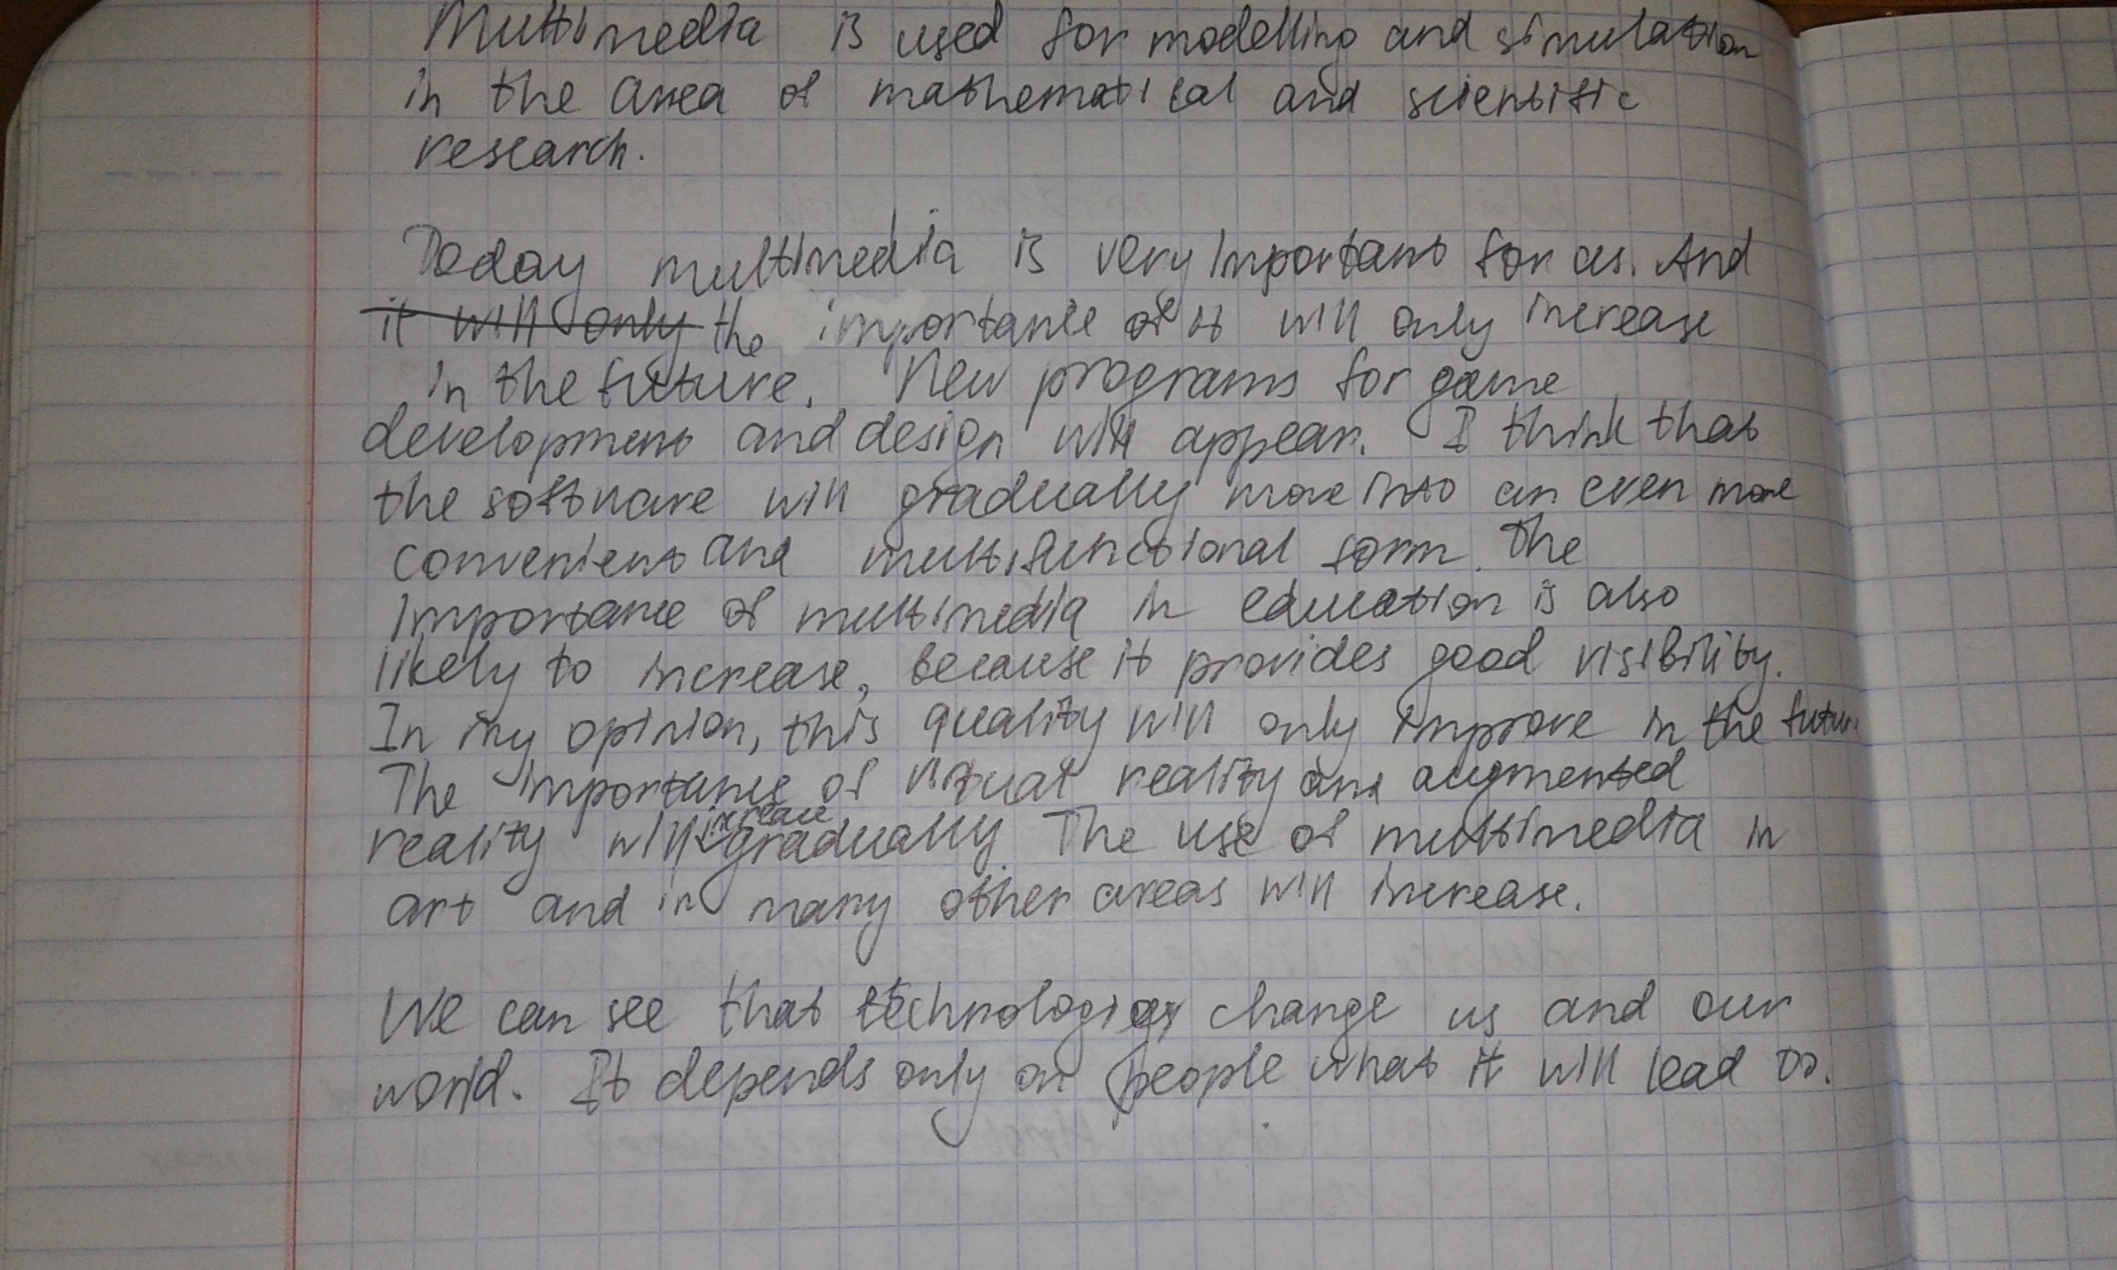 Multimedia is used for modelling and simulation
in the area of mathematical and scientific
research.
Today multimedia is very important for us. And
it will only the importance of it will only increase
in the future. New programs for game
development and design will appear. I think that
the software will gradually move into an even more
convenient and multifunctional form. The
importance of multimedia in education is also
likely to increase, because it provides good visibility.
In my opinion, this quality will only improve in the future
The importance of virtual reality and augmented
reality will increase gradually. The use of multimedia in
art and in many other areas will increase.
We can see that technology change us and our
world. It depends only on people what it will lead to.